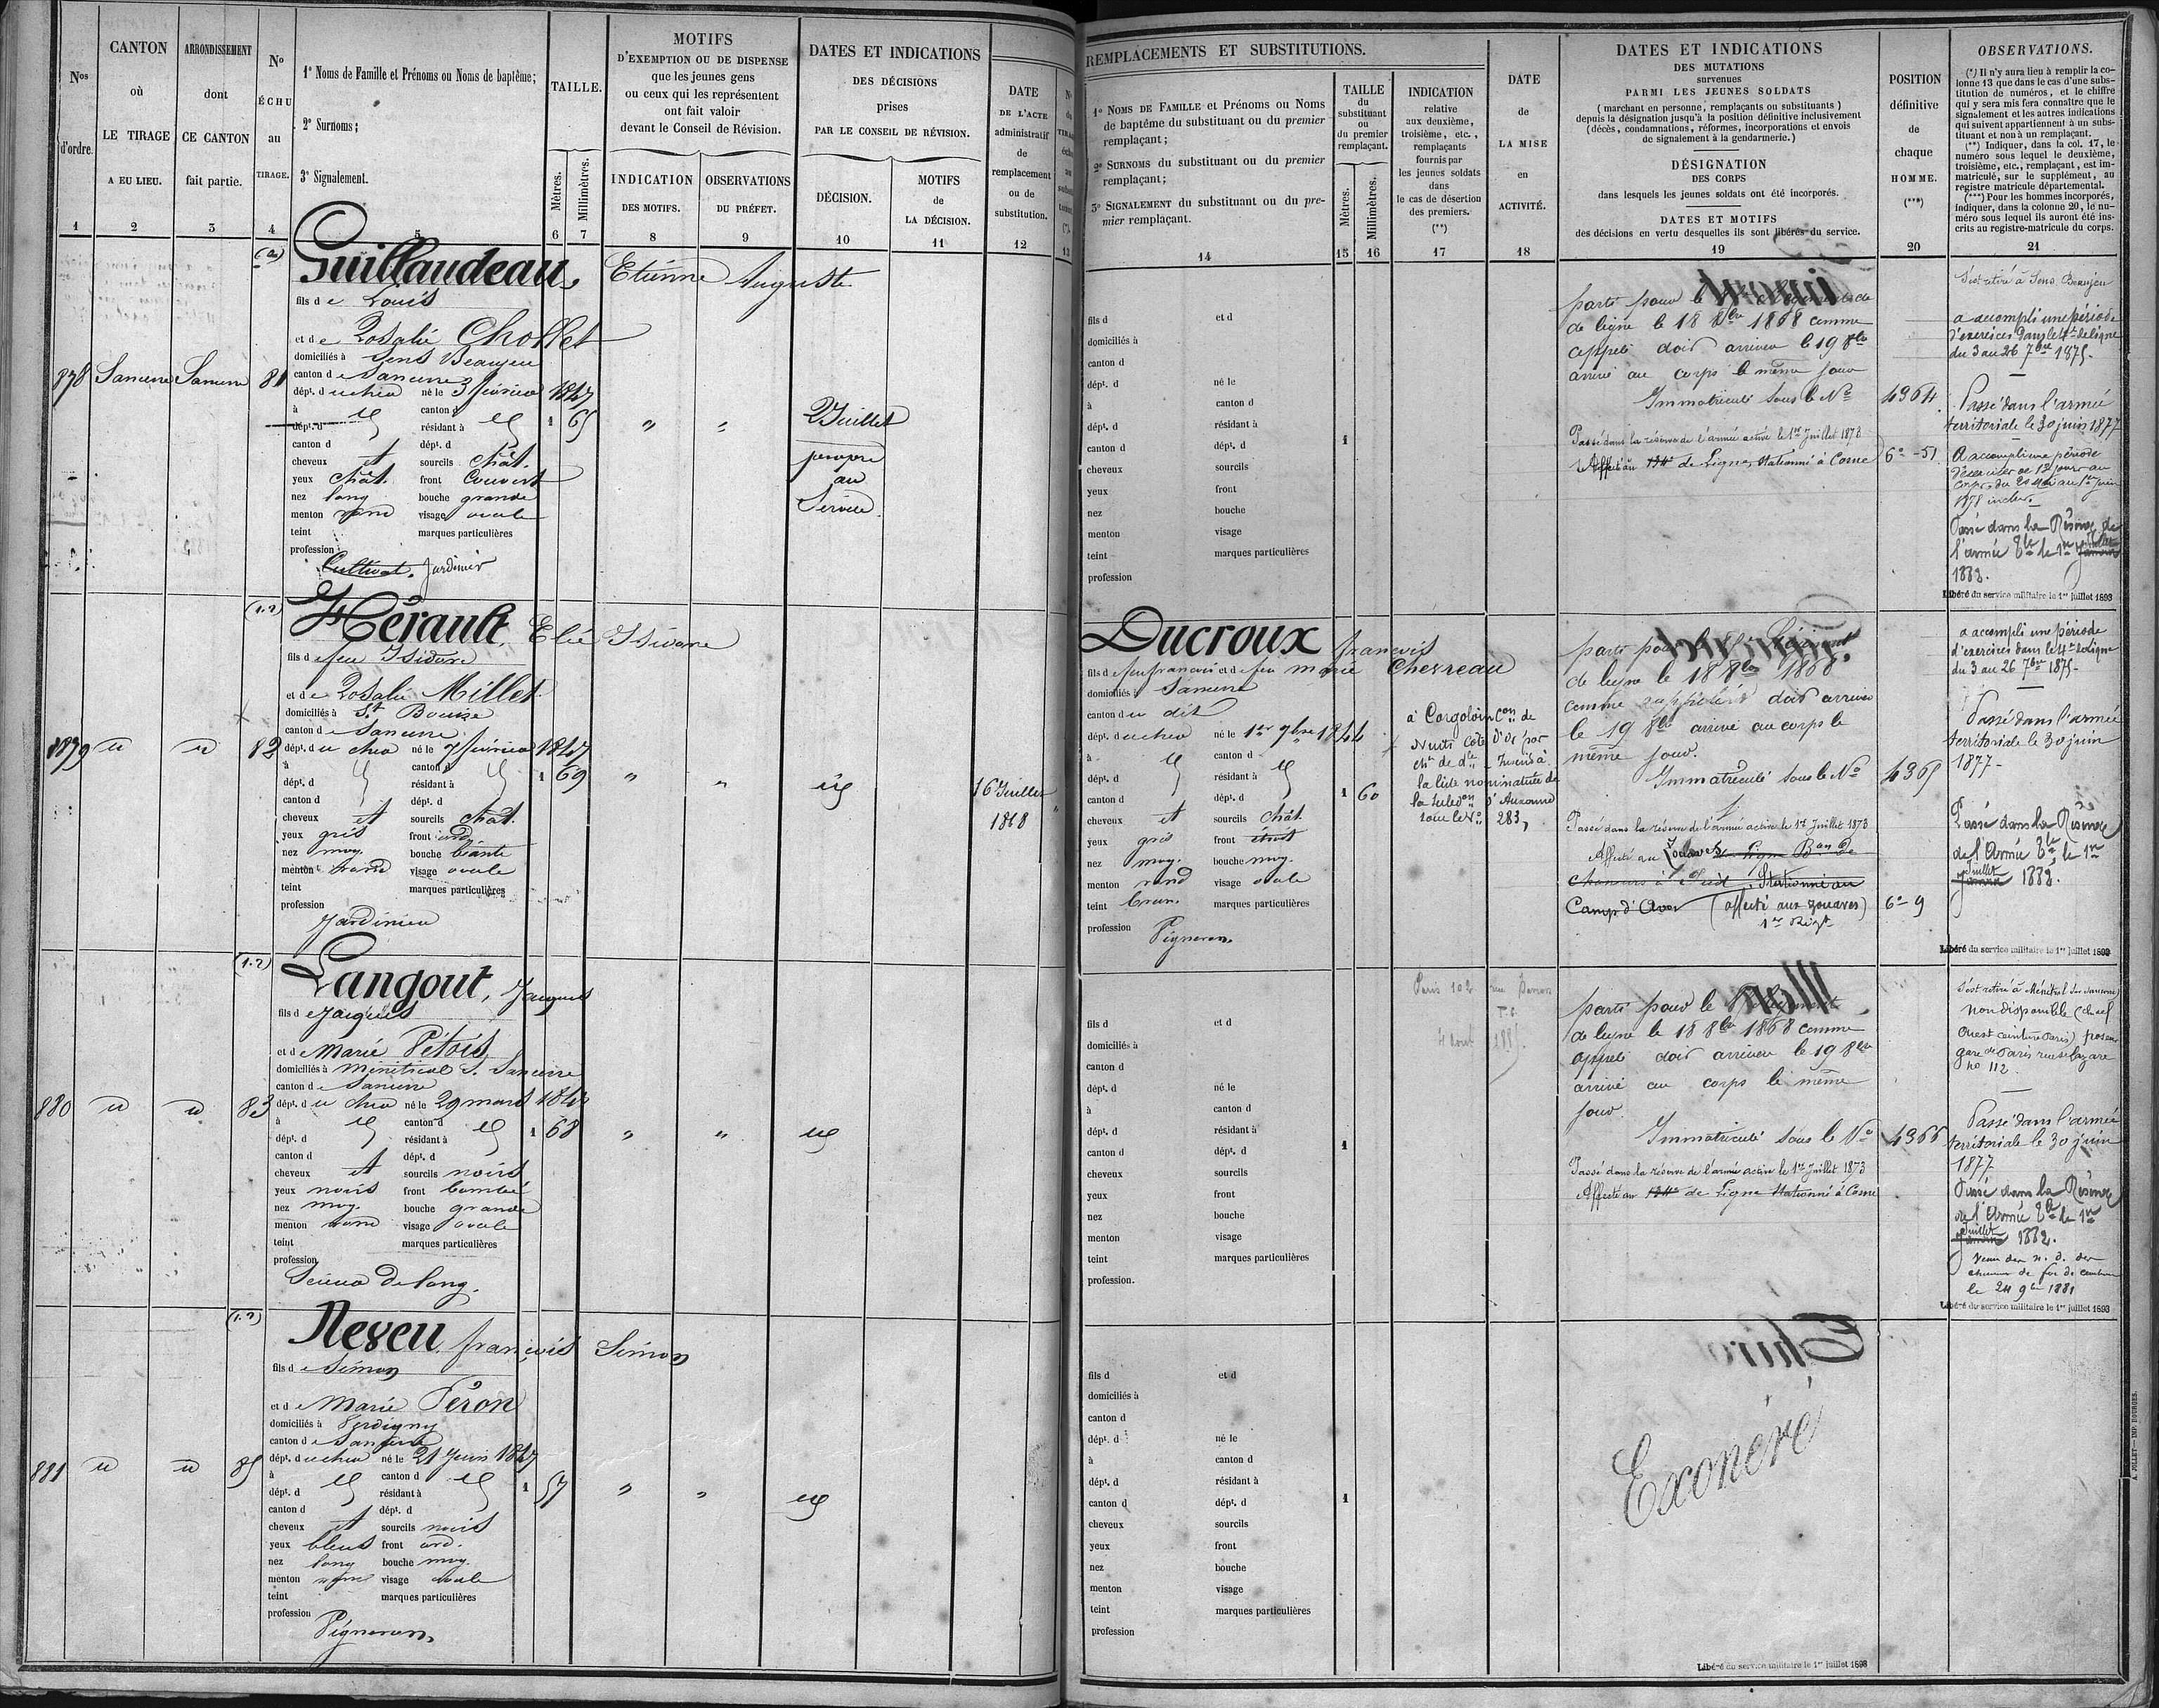 Nos d'ordre.
CANTON où LE TIRAGE A EU LIEU.
ARRONDISSEMENT dont CE CANTON fait partie.
No ÉCHU au TIRAGE.
1° Noms de Famille et Prénoms ou Noms de baptême;
2° Surnoms;
3° Signalement.
TAILLE.
Mètres.
Millimètres.
MOTIFS
D'EXEMPTION OU DE DISPENSE
que les jeunes gens
ou ceux qui les représentent
ont fait valoir
devant le Conseil de Révision.
INDICATION DES MOTIFS.
OBSERVATIONS DU PRÉFET.
DATES ET INDICATIONS
DES DÉCISIONS
prises
PAR LE CONSEIL DE RÉVISION.
DÉCISION.
MOTIFS de LA DÉCISION.
DATE
DE L'ACTE
administratif
de
remplacement
ou de
substitution.
1 2 3 4 5 6 7 8 9 10 11 12 13
Guillaudeau, Etienne Auguste
fils de Louis
et de Rosalie Chollet
domiciliés à Sens Beaujeu
canton de Sancerre
878 Sancerre Sancerre 81
dépt. du cher né le 3 février 1847
à canton d
dépt. d résidant à
1 65 " " 2 Juillet
canton d dépt. d
cheveux et sourcils chât.
propre
yeux chât. front couvert
au
nez long bouche grande
Service
menton rond visage ovale
teint marques particulières
profession
Cultivat. Jardinier
(1.2)
Hérault, Elie Isidore
fils de feu Isidore
et de Rosalie Millet
domiciliés à St Bouize
canton de Sancerre
879 82
dépt. du cher né le 7 février 1847
à canton d
dépt. d résidant à
1 69 " " id
16 Juillet
1868
canton d dépt. d
cheveux et sourcils chât.
yeux gris front ord.
nez moy. bouche béante
menton rond visage ovale
teint marques particulières
profession
Jardinier
(1.2)
Langout, Jacques
fils de Jacques
et de Marie Pétois
domiciliés à Ménétréol S. Sancerre
canton de Sancerre
880 83
dépt. du cher né le 29 mars 1847
à canton d
dépt. d résidant à
1 68 " " id
canton d dépt. d
cheveux et sourcils noirs
yeux noirs front bombé
nez moy. bouche grande
menton rond visage ovale
teint marques particulières
profession
Scieur de long.
(1.2)
Neveu, françois Simon
fils de Simon
et de Marie Péron
domiciliés à Verdigny
canton de Sancerre
881 85
dépt. du cher né le 21 Juin 1847
à canton d
dépt. d résidant à
1 57 " " id
canton d dépt. d
cheveux et sourcils noirs
yeux bleus front ord.
nez long bouche moy.
menton rond visage ovale
teint marques particulières
profession
Vigneron
REMPLACEMENTS ET SUBSTITUTIONS.
1° NOMS DE FAMILLE et Prénoms ou Noms
de baptême du substituant ou du premier
remplaçant;
2° SURNOMS du substituant ou du premier
remplaçant;
3° SIGNALEMENT du substituant ou du pre-
mier remplaçant.
TAILLE
du
substituant
ou
du premier
remplaçant.
Mètres.
Millimètres.
INDICATION
relative
aux deuxième,
troisième, etc.,
remplaçants
fournis par
les jeunes soldats
dans
le cas de désertion
des premiers.
(**)
DATE
de
LA MISE
en
ACTIVITÉ.
DATES ET INDICATIONS
DES MUTATIONS
survenues
PARMI LES JEUNES SOLDATS
(marchant en personne, remplaçants ou substituants)
depuis la désignation jusqu'à la position définitive inclusivement
(décès, condamnations, réformes, incorporations et envois
de signalement à la gendarmerie.)
DÉSIGNATION
DES CORPS
dans lesquels les jeunes soldats ont été incorporés.
DATES ET MOTIFS
des décisions en vertu desquelles ils sont libérés du service.
POSITION
définitive
de
chaque
HOMME.
(***)
OBSERVATIONS.
(*) Il n'y aura lieu à remplir la co-
lonne 13 que dans le cas d'une subs-
titution de numéros, et le chiffre
qui y sera mis fera connaître que le
signalement et les autres indications
qui suivent appartiennent à un subs-
tituant et non à un remplaçant.
(**) Indiquer, dans la col. 17, le
numéro sous lequel le deuxième,
troisième, etc., remplaçant, est im-
matriculé, sur le supplément, au
registre matricule départemental.
(***) Pour les hommes incorporés,
indiquer, dans la colonne 20, le nu-
méro sous lequel ils auront été ins-
crits au registre-matricule du corps.
14 15 16 17 18 19 20 21
fils d et d
domiciliés à
canton d
dépt. d né le
à canton d
dépt. d résidant à
canton d dépt. d
1
cheveux sourcils
yeux front
nez bouche
menton visage
teint marques particulières
profession
parti pour le
de ligne le 18 8bre 1868 comme
appelé doit arriver le 19 8bre
arrivé au corps le même jour
Immatriculé sous le No 4364
Passé dans la réserve de l'armée active le 1er Juillet 1873
Affecté au de Ligne Stationné à Cosne 6e-51
S'est retiré à Sens Beaujeu
a accompli une période
d'exercices dans le 4e de ligne
du 3 au 26 7bre 1875.
Passé dans l'armée
territoriale le 30 juin 1877
A accompli une période
d'exercices de 12 jours au
corps, du au 1er Juin
1878 inclus.
Passé dans la Réserve de
l'armée Tle le 1er Juillet
1883.
Libéré du service militaire le 1er juillet 1893
Ducroux françois
fils de feu françois et de feu marie Chevreau
domiciliés à Sancerre
canton du dit
dépt. du cher né le 1er 9bre 1844
à canton d
dépt. d résidant à
canton d dépt. d
1 60
cheveux et sourcils chât.
yeux gris front étroit
nez moy. bouche moy.
menton rond visage ovale
teint brun. marques particulières
profession
Vigneron
à Corgoloin Con de
Nuits Côte d'Or par
la liste nominative de
la d'Auxonne
sous le No 283,
parti pour le Régiment
de ligne le 18 8bre 1868
comme doit arriver
le 19 8bre arrivé au corps le
même jour.
Immatriculé sous le No 4365
Passé dans la réserve de l'armée active le 1er Juillet 1873
Affecté au Zouaves Ligne Bon de
chasseurs à Pied Stationné au
Camp d'Avor (affecté aux zouaves) 6e-9
1er Régt
a accompli une période
d'exercices dans le 4e de ligne
du 3 au 26 7bre 1875.
Passé dans l'armée
territoriale le 30 juin
1877.
Passé dans la Réserve
de l'Armée Tle le 1er
Juillet 1883.
Libéré du service militaire le 1er juillet 1893
Paris 102 rue
4 août
fils d et d
domiciliés à
canton d
dépt. d né le
à canton d
dépt. d résidant à
canton d dépt. d
1
cheveux sourcils
yeux front
nez bouche
menton visage
teint marques particulières
profession.
parti pour le Régiment
de ligne le 18 8bre 1868 comme
appelé doit arriver le 19 8bre
arrivé au corps le même
jour.
Immatriculé sous le No 4366
Passé dans la réserve de l'armée active le 1er Juillet 1873
Affecté au de Ligne Stationné à Cosne
S'est retiré à Ménétréol sur Sancerre
Non disponible
Ouest ceinture Paris)
gare de Paris rue St Lazare
no 112.
Passé dans l'armée
territoriale le 30 juin
1877
Passé dans la Réserve
de l'Armée Tle le 1er
Juillet 1882.
chemins de fer de ceinture
le 24 9bre 1881
Libéré du service militaire le 1er juillet 1893
fils d et d
domiciliés à
canton d
dépt. d né le
à canton d
dépt. d résidant à
canton d dépt. d
1
cheveux sourcils
yeux front
nez bouche
menton visage
teint marques particulières
profession
Exonéré
Libéré du service militaire le 1er juillet 1893
A. JOLLET — IMP. BOURGES.